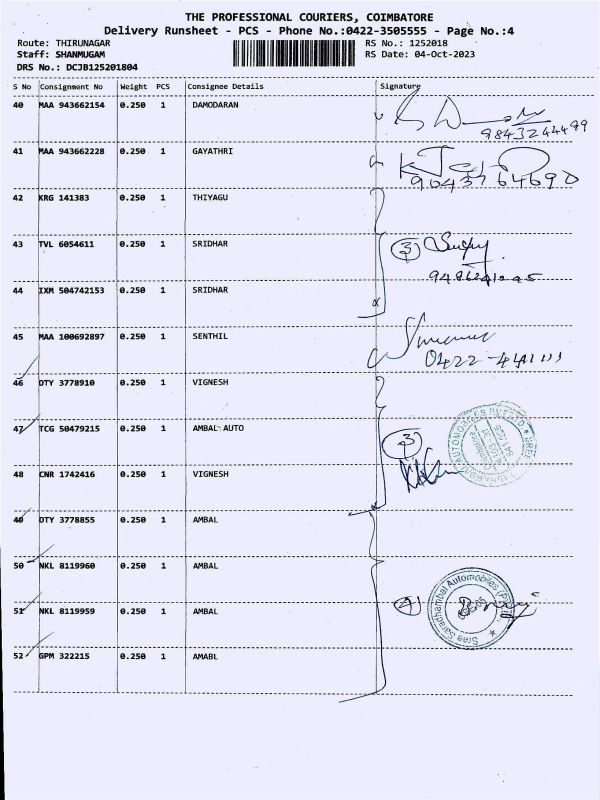 THE PROFESSIONAL COURIERS, COIMBATORE
Delivery Runsheet - PCS - Phone No.:0422-3505555 - Page No.:4
Route: THIRUNAGAR RS No.: 1252018
Staff: SHANMUGAM RS Date: 04-Oct-2023
DRS No.: DCJB125201804
S No Consignment No Weight PCS Consignee Details Signature
40 MAA 943662154 0.250 1 DAMODARAN
9843244499
41 MAA 943662228 0.250 1 GAYATHRI
9043764690
42 KRG 141383 0.250 1 THIYAGU
43 TVL 6054611 0.250 1 SRIDHAR
3
44 IXM 504742153 0.250 1 SRIDHAR
45 MAA 100692897 0.250 1 SENTHIL
0422
46 OTY 3778910 0.250 1 VIGNESH
47 TCG 50479215 0.250 1 AMBAL AUTO
3
48 CNR 1742416 0.250 1 VIGNESH
49 OTY 3778855 0.250 1 AMBAL
50 NKL 8119960 0.250 1 AMBAL
51 NKL 8119959 0.250 1 AMBAL
4
Sree Saradhambal Automobiles (P)
52 GPM 322215 0.250 1 AMABL